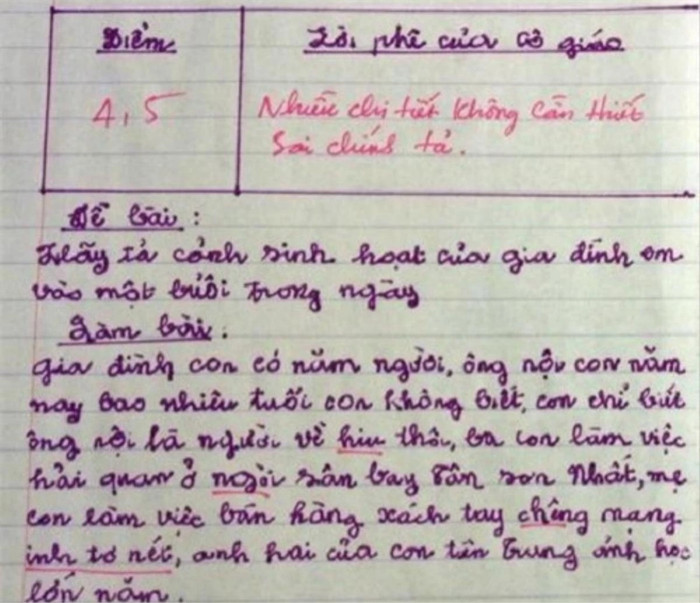 Điểm
Lời phê của cô giáo
4,5
Nhiều chi tiết không cần thiết
Sai chính tả.
Đề bài:
Hãy tả cảnh sinh hoạt của gia đình em
vào một buổi trong ngày
Làm bài:
Gia đình con có năm người, ông nội con năm
nay bao nhiêu tuổi con không biết, con chỉ biết
ông nội là người về hiu thôi, ba con làm việc
hải quan ở ngoài sân bay Tân Sơn Nhất, mẹ
con làm việc bán hàng xách tay chêng mạng
inh tơ nét, anh hai của con tên Trung ảnh học
lớn năm.